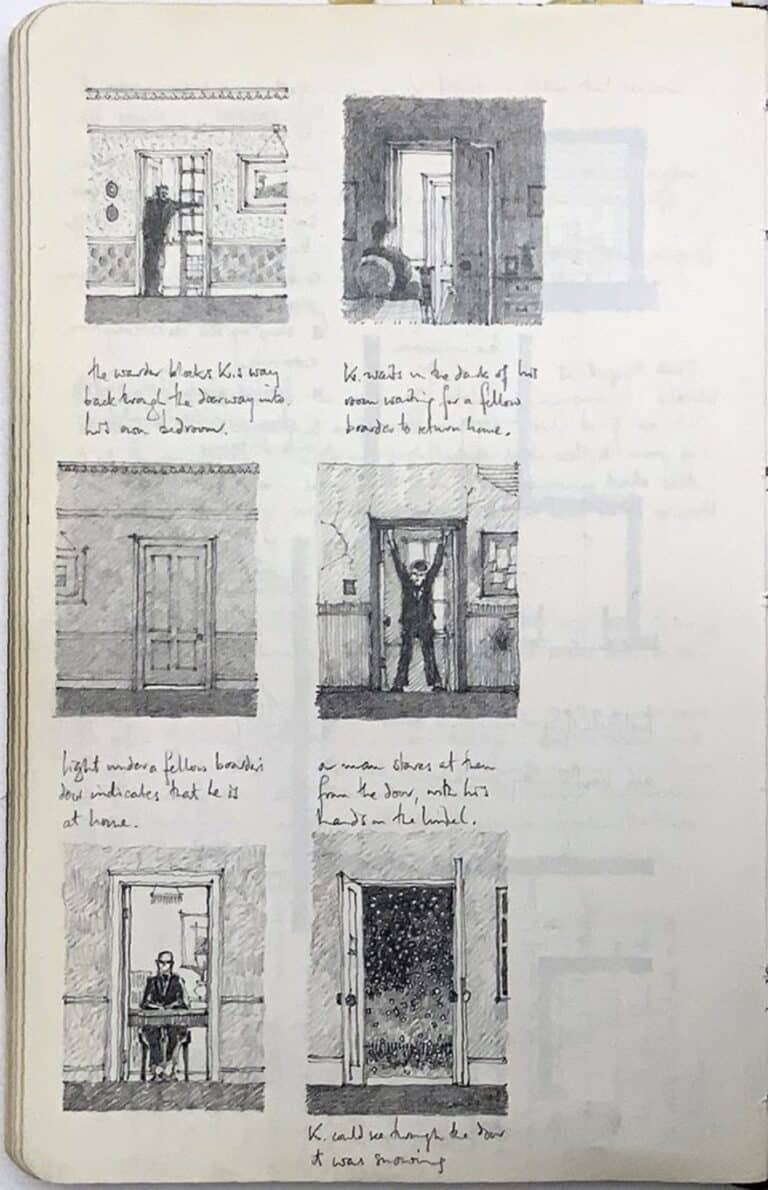 the warder blocks K.s way
back through the doorway into
his own bedroom.
K. waits in the dark of his
room waiting for a fellow
boarder to return home.
light under a fellow boarder's
door indicates that he is
at home.
a man stares at them
from the door, with his
hands on the lintel.
K. could see through the door
it was snowing